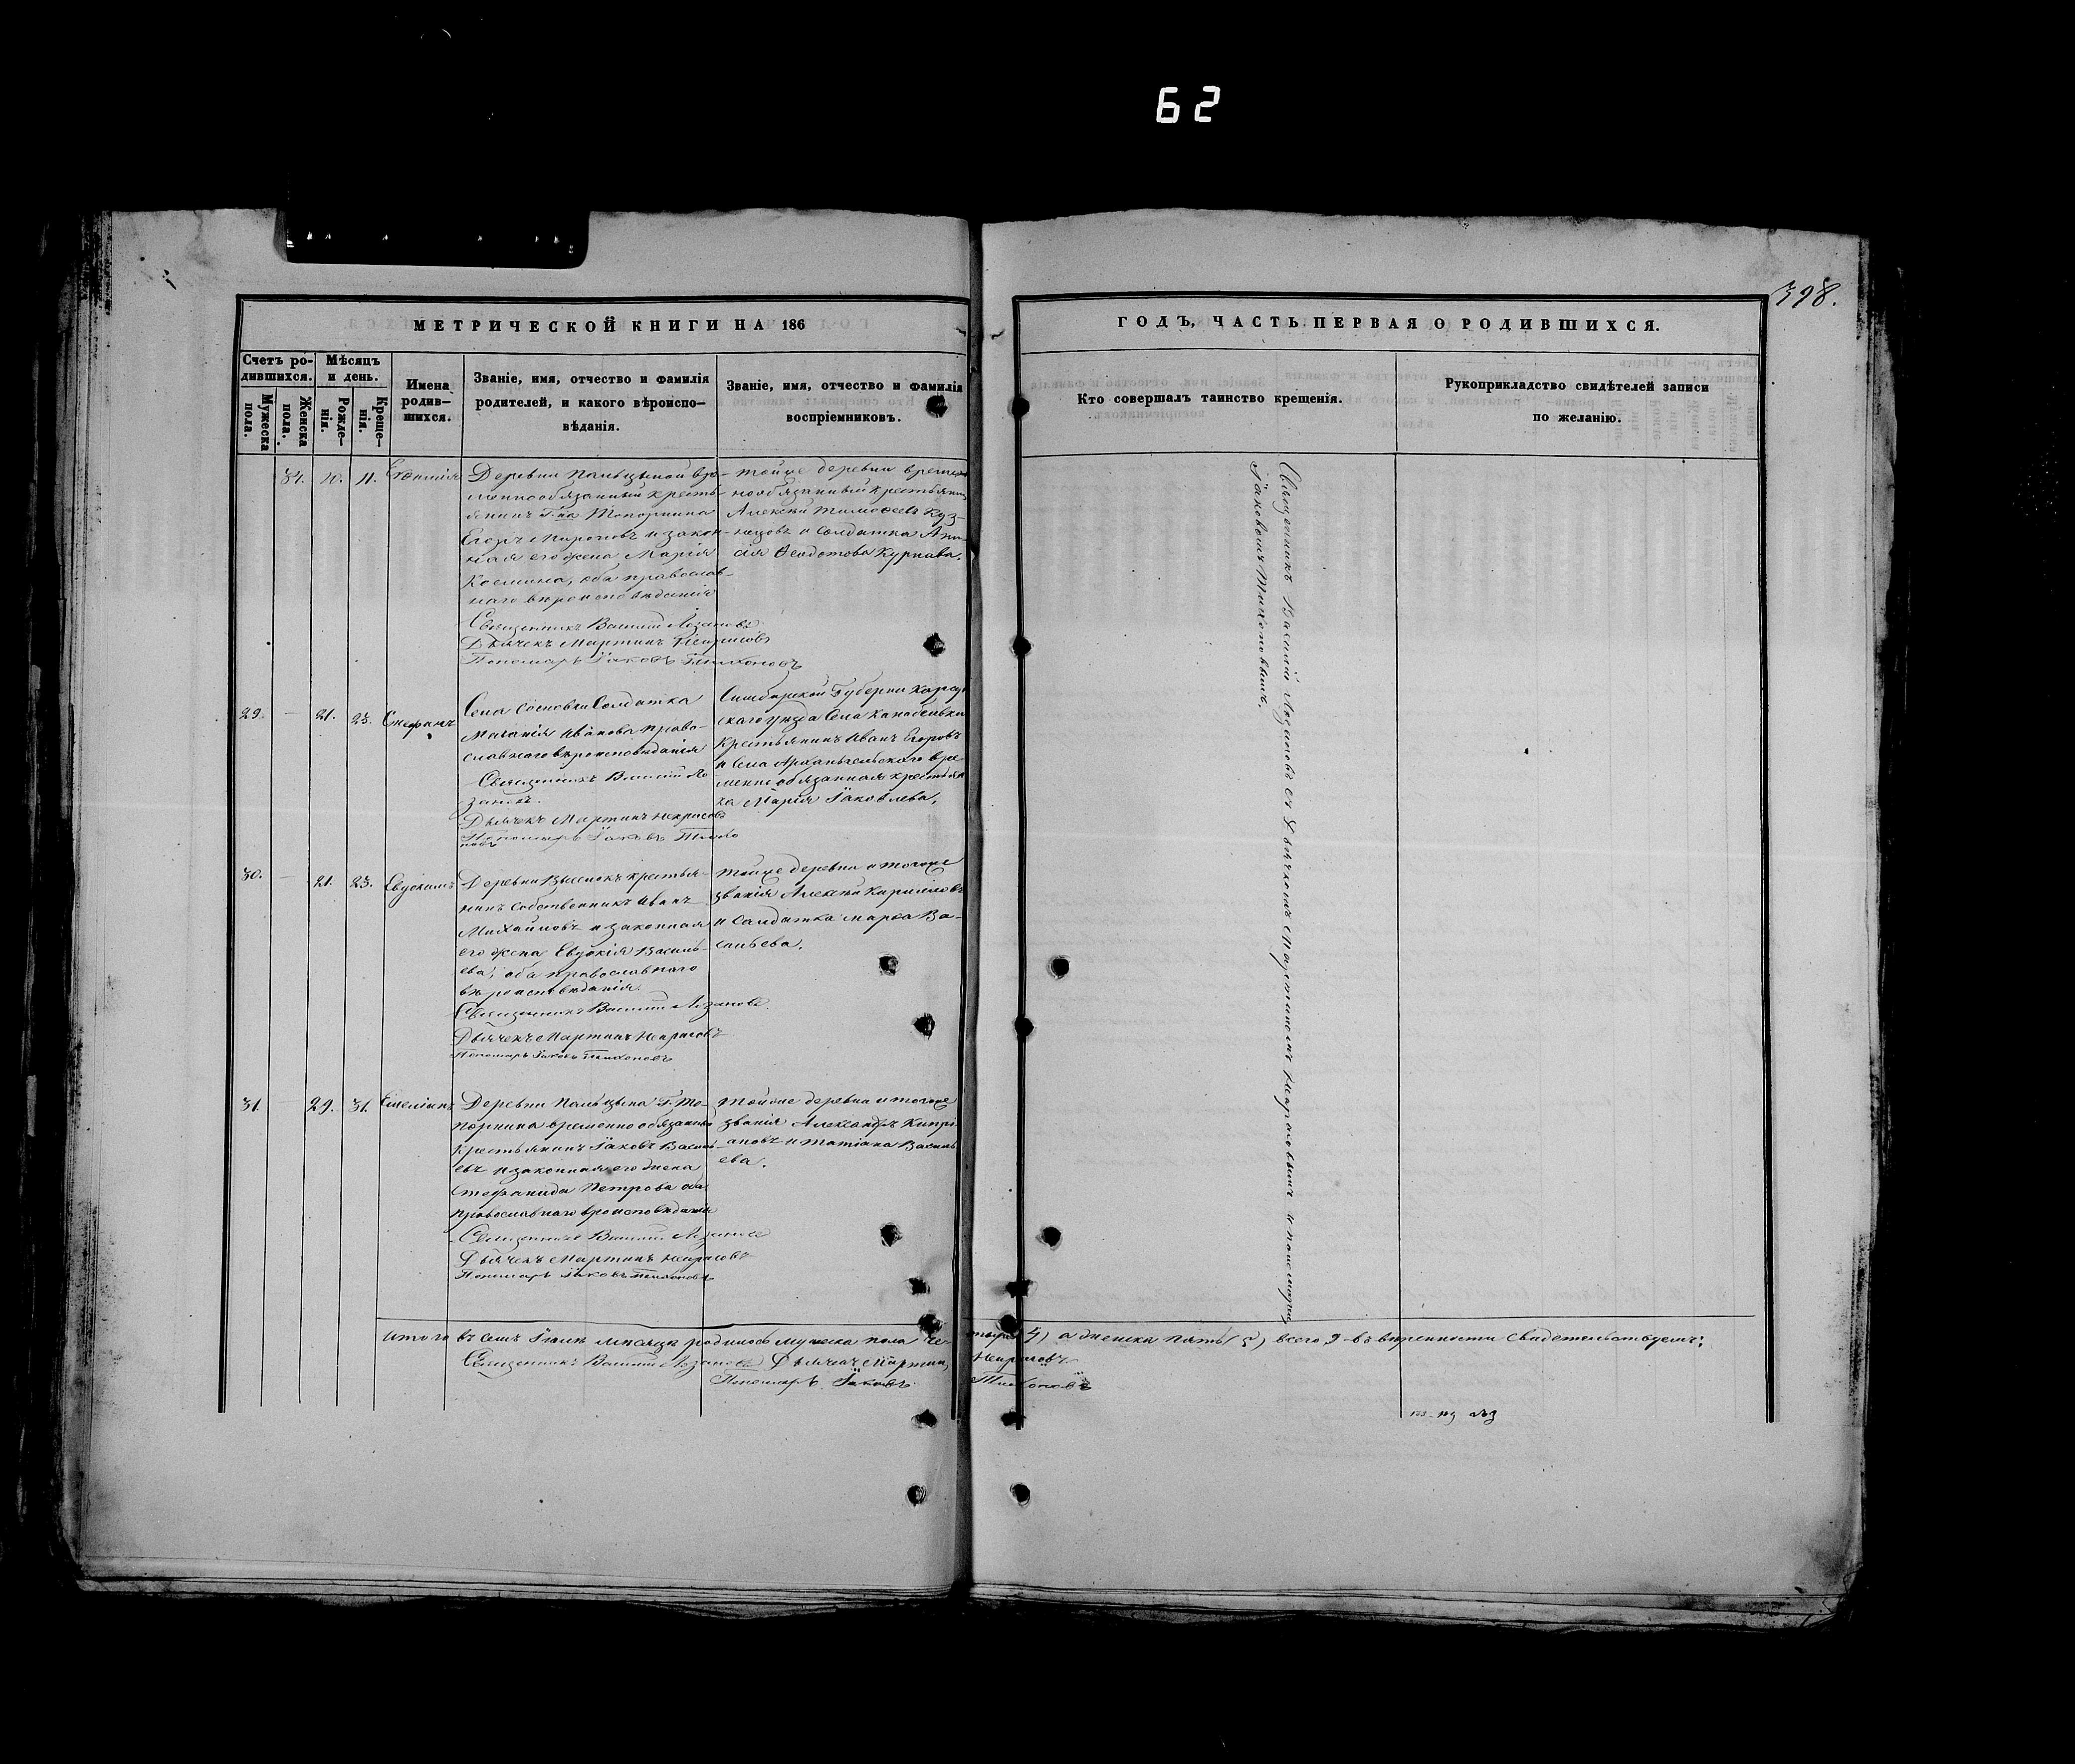 62
398.
МЕТРИЧЕСКОЙ КНИГИ НА 186
ГОДЪ, ЧАСТЬ ПЕРВАЯ О РОДИВШИХСЯ.
Счетъ ро-
дившихся.
Мужеска
пола.
Женска
пола.
Мѣсяцъ
и день.
Рожде-
нія.
Креще-
нія.
Имена
родив-
шихся.
Званіе, имя, отчество и фамилія
родителей, и какого вѣроиспо-
вѣданія.
Званіе, имя, отчество и фамилія
воспріемниковъ.
Кто совершалъ таинство крещенія.
Рукоприкладство свидѣтелей записи
по желанію.
34. 10. 11.
Деревни Пальцыной вре-
меннообязанный кресть-
янинъ Г-на Топорнина
Егоръ Мироновъ и закон-
ная его жена Марія
Космина, оба православ-
наго вѣроисповѣданія
Священникъ Василій Лозановъ
Дьячекъ Мартинъ Некрасовъ
Пономарь Іаковъ Тихоновъ
тойже деревни времен
нообязанный крестьянинъ
Алексѣй Тимофеевъ Куз-
нецовъ и Солдатка
Ѳедотова
29. – 21. 23. Стефанъ
Села Сосновки Солдатка
Иванова право-
славнаго вѣроисповѣданія
Священникъ Василій Ло
зановъ.
Дьячекъ Мартинъ Некрасовъ
Пономарь Іаковъ Тихо
новъ
Симбирской Губерніи Карсун
скаго уѣзда Села
Крестьянинъ Иванъ Егоровъ
и Села Архангельскаго вре
менно обязанная крестьян
ка Марія Іаковлева.
30. – 21. 23. Евдокимъ
Деревни крестья-
нинъ собственникъ Иванъ
Михайловъ и законная
его жена Евдокія Василь-
ева, оба православнаго
вѣроисповѣданія
Священникъ Василій Лозановъ
Дьячекъ Мартинъ Некрасовъ
Пономарь Іаковъ Тихоновъ
тойже деревни и тогоже
званія Алексѣй Кирилловъ
и Солдатка Марѳа Ва-
сильева.
31. – 29. 31. Емеліанъ
Деревни Пальцына Г. То-
порнина временно обязанный
Крестьянинъ Іаковъ Василь
евъ и законная его жена
Стефанида Петрова оба
православнаго вѣроисповѣданія
Священникъ Василій Лозановъ
Дьячекъ Мартинъ Некрасовъ
Пономарь Іаковъ Тихоновъ
тойже деревни и тогоже
званія Александръ Кипрі-
ановъ и Татіана Василь
ева.
Священникъ Василій Лозановъ съ Дьячкомъ Мартиномъ Некрасовымъ и пономаремъ
Іаковомъ Тихоновымъ.
Итого въ семъ Іюлѣ мѣсяцѣ родилось мужеска пола че-
тыре 4) а женска пять (5) всего 9 въ вѣрности свидѣтельствуемъ:
Священникъ Василій Лозановъ Дьячекъ Мартинъ Некрасовъ
Пономарь Іаковъ Тихоновъ